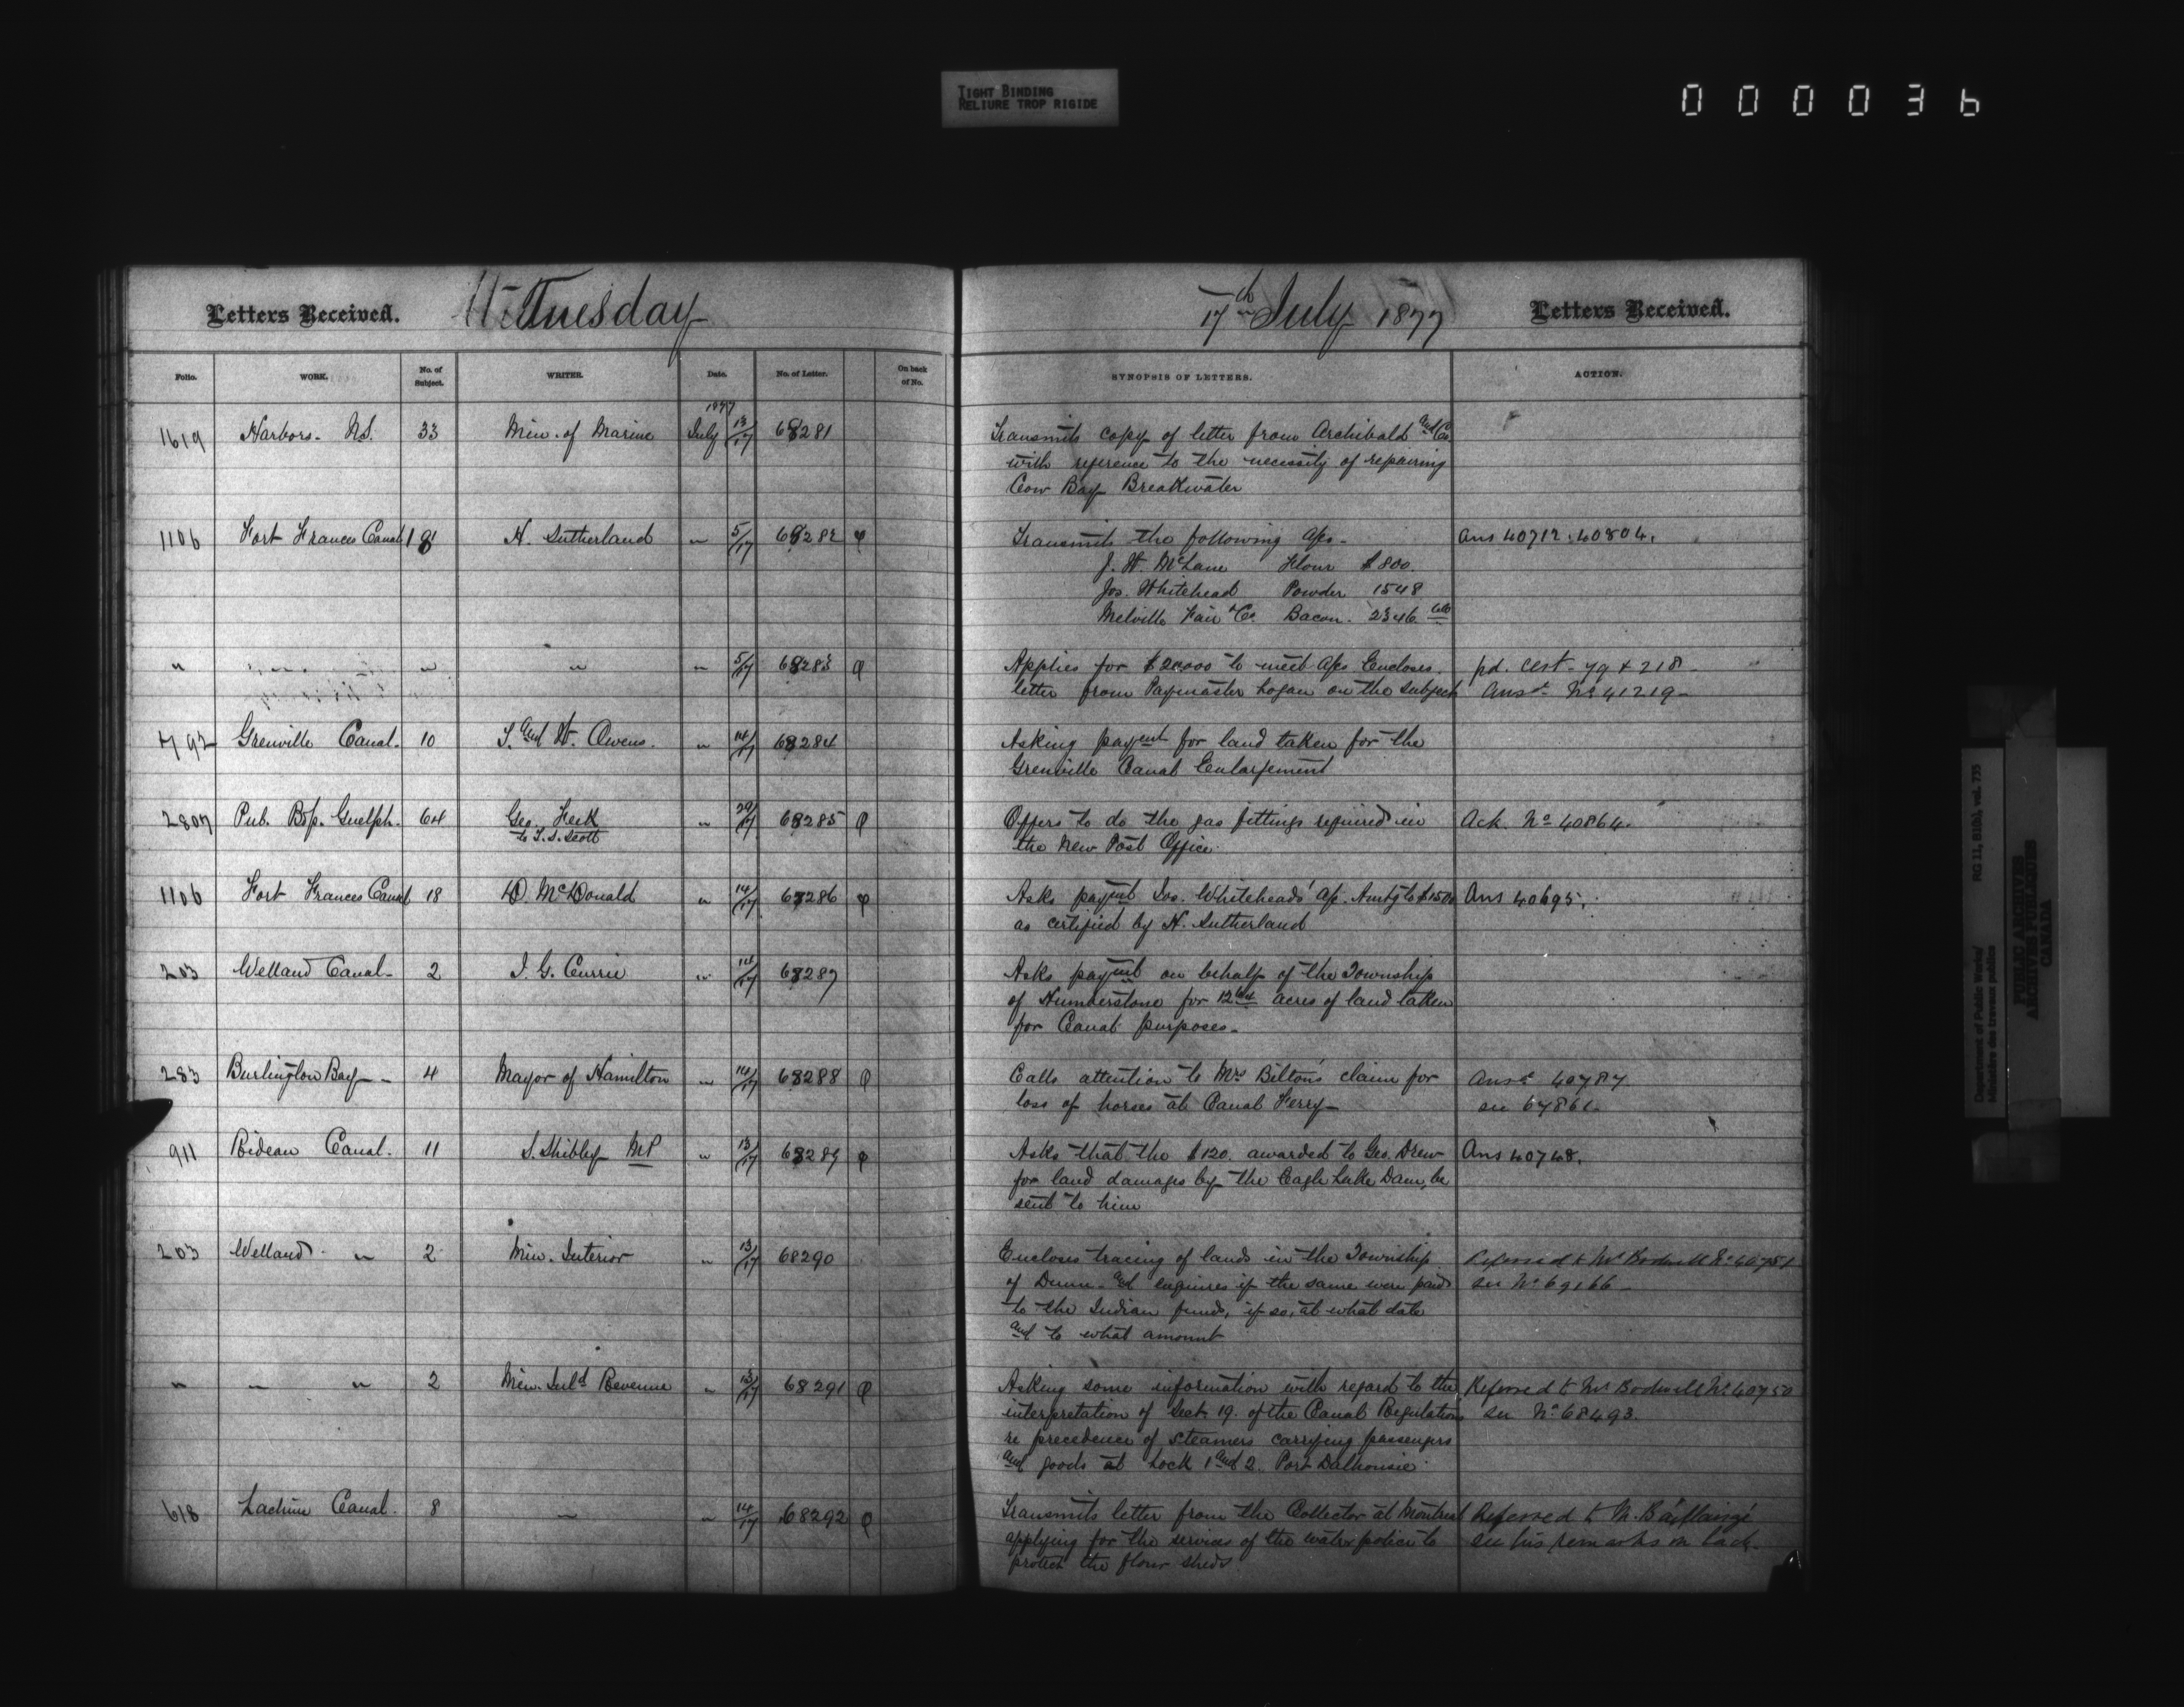 TIGHT BINDING
RELIURE TROP RIGIDE
000036
Letters Received. Tuesday
17th July 1877 Letters Received.
Folio. WORK. No. of Subject. WRITER. Date. No. of Letter. On back of No. SYNOPSIS OF LETTERS. ACTION.
1877
1619 Harbors. N.S. 33 Min. of Marine July 13/17 68281 Transmits copy of letter from Archibald and Co.
with reference to the necessity of repairing
Cow Bay Breakwater
1106 Fort Frances Canal 18 H. Sutherland " 5/17 68282 φ Transmits the following a/cs - Ans 40712. 40804.
J. H. McLane Flour $800.
Jos. Whitehead Powder 1548
Melville Fair & Co. Bacon. 2346
" " " " " 5/17 68283 φ Applies for $20000 to meet a/cs Encloses pd. cert. 79 + 218
letter from Paymaster Logan on the subject Ansd No 41219
792 Grenville Canal. 10 and W. Owens. " 14/17 68284 Asking payment for land taken for the
Grenville Canal Enlargement
2807 Pub. Bdg. Guelph. 64 Geo. " 29/17 68285 φ Offers to do the gas fittings required in Ack. No 40864.
to T. S. Scott the New Post Office.
1106 Fort Frances Canal 18 D. McDonald " 14/17 68286 φ Asks payment Jos. Whiteheads' a/c. Amtg to $1500 Ans 40695.
as certified by H. Sutherland
203 Welland Canal - 2 J. G. Currie " 14/17 68287 Asks payment on behalf of the Township
of Humberstone for 12 acres of land taken
for Canal purposes -
283 Burlington Bay - 4 Mayor of Hamilton " 14/17 68288 φ Calls attention to Mrs Bilton's claim for Ansd 40787
loss of horses at Canal Ferry - see 67861.
911 Rideau Canal. 11 S. Shibley MP " 13/17 68289 φ Asks that the $120. awarded to Geo. Drew Ans 40748.
for land damages by the Eagle Lake Dam, be
sent to him
203 Welland " 2 Min. Interior " 13/17 68290 Encloses tracing of lands in the Township Referred to Mr Bodwell No 40751
of Dunn - and enquires if the same were paid see No 69166 -
to the Indian funds, if so, at what date
and to what amount
" " " 2 Min. Inld Revenue " 13/17 68291 φ Asking some information with regard to the Referred to Mr Bodwell No 40750
interpretation of Sect 19. of the Canal Regulations see No 68493.
re precedence of steamers carrying passengers
and goods at Lock 1 and 2. Port Dalhousie
618 Lachine Canal. 8 " " 14/17 68292 φ Transmits letter from the Collector at Montreal Referred to M. Baillairgé
applying for the services of the water police to see his remarks on back -
protect the flour sheds
Department of Public Works/ RG 11, B1(b), vol. 735
Ministère des travaux publics
PUBLIC ARCHIVES
ARCHIVES PUBLIQUES
CANADA